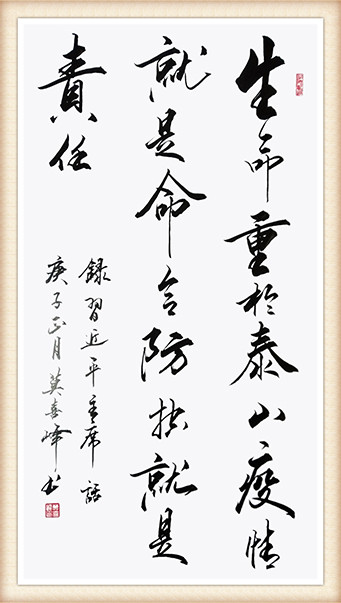 生命重於泰山疫情
就是命令防控就是
責任
録習近平主席語
庚子正月莫喜峰书